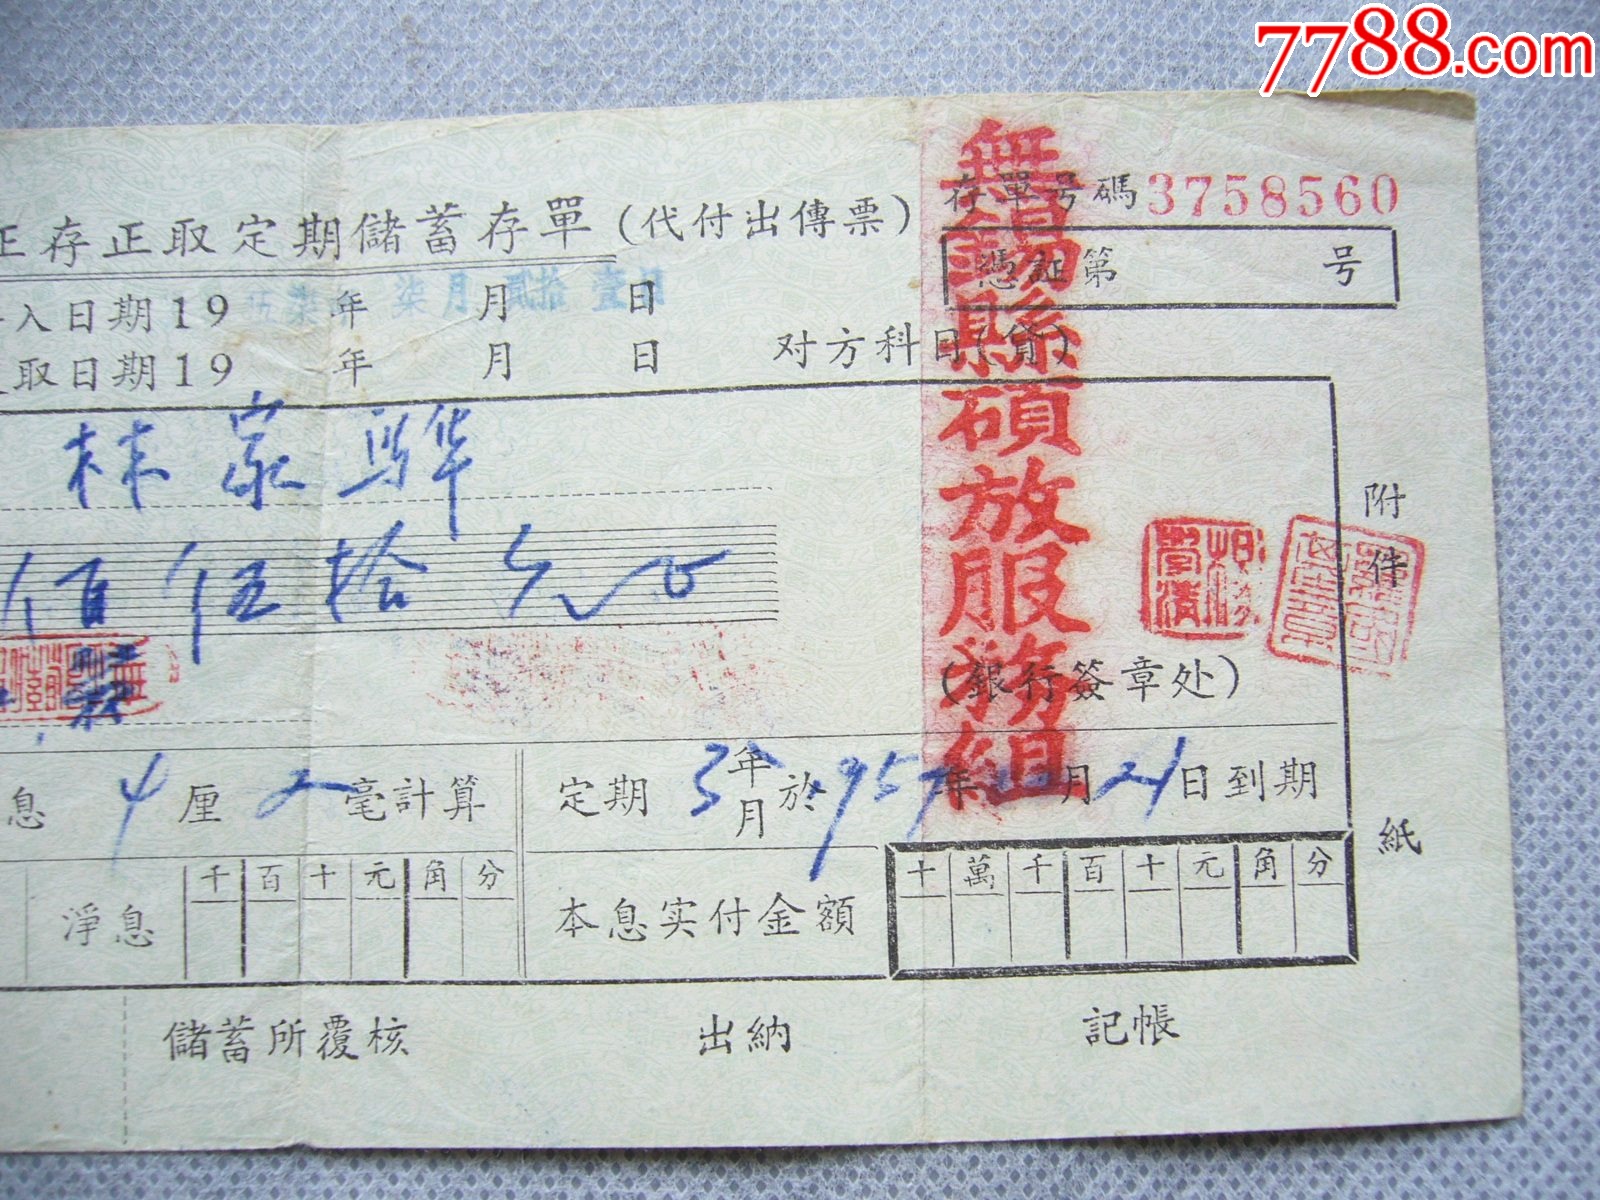 7788.com
存單号碼3758560
正存正取定期儲蓄存單(代付出傳票)
憑証第 号
入日期19 年 月 日
伍柒年 柒月 貳拾壹日
取日期19 年 月 日 对方科目(貸)
無錫縣碩放服務組
林家骅
佰伍拾元正
附件
(銀行簽章处)
息4厘2毫計算 定期3年月於1957年10月21日到期
紙
千百十元角分
十萬千百十元角分
淨息 本息实付金額
儲蓄所覆核 出納 記帳